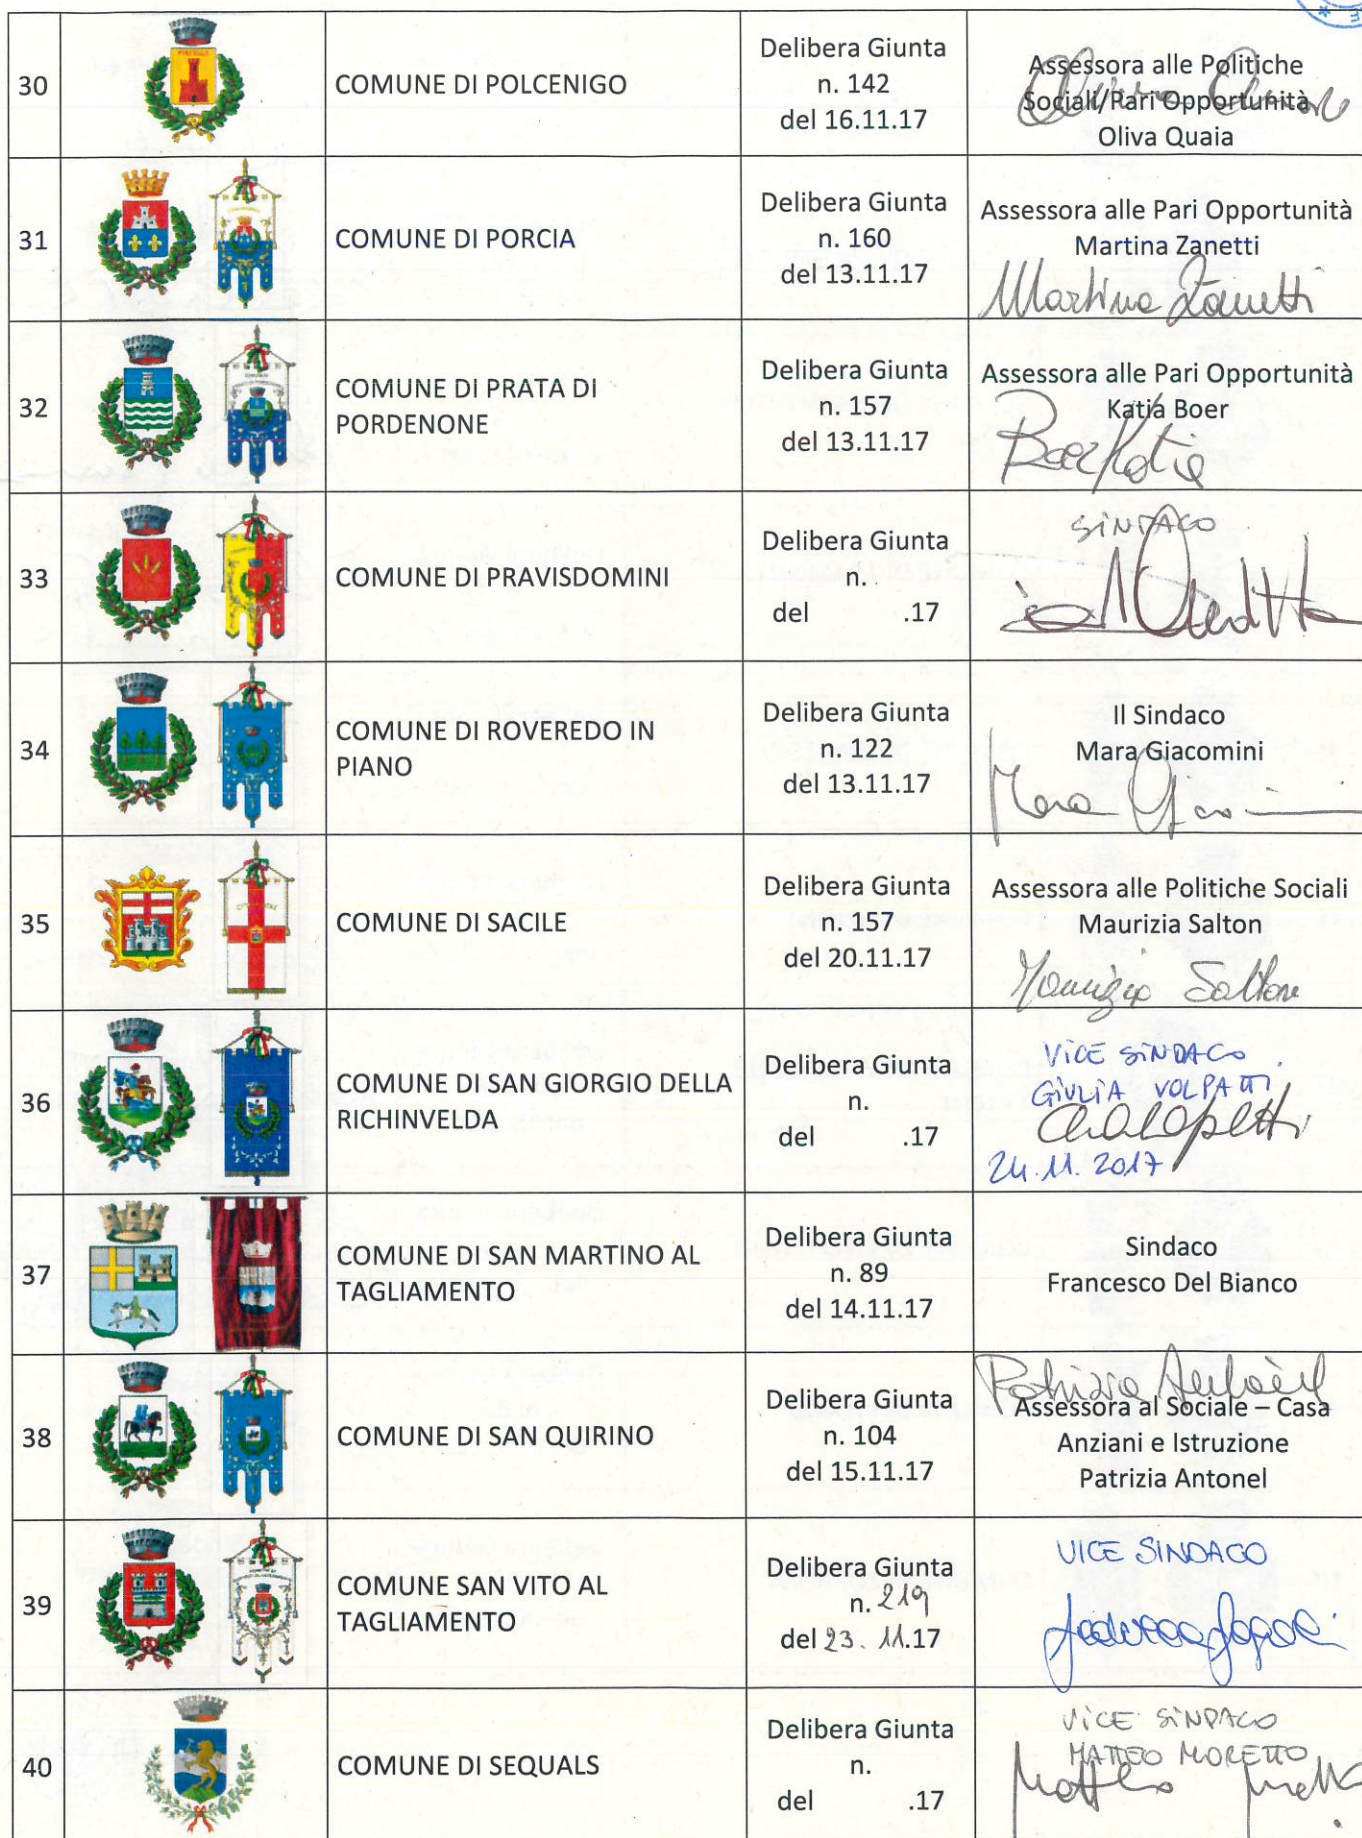 30
COMUNE DI POLCENIGO
Delibera Giunta
n. 142
del 16.11.17
Assessora alle Politiche
Sociali/Pari Opportunità
Oliva Quaia
31
COMUNE DI PORCIA
Delibera Giunta
n. 160
del 13.11.17
Assessora alle Pari Opportunità
Martina Zanetti
Martina Zanetti
32
COMUNE DI PRATA DI
PORDENONE
Delibera Giunta
n. 157
del 13.11.17
Assessora alle Pari Opportunità
Katia Boer
Boer Katia
33
COMUNE DI PRAVISDOMINI
Delibera Giunta
n.
del .17
SINDACO
34
COMUNE DI ROVEREDO IN
PIANO
Delibera Giunta
n. 122
del 13.11.17
Il Sindaco
Mara Giacomini
Mara
35
COMUNE DI SACILE
Delibera Giunta
n. 157
del 20.11.17
Assessora alle Politiche Sociali
Maurizia Salton
Maurizia Salton
36
COMUNE DI SAN GIORGIO DELLA
RICHINVELDA
Delibera Giunta
n.
del .17
VICE SINDACO
GIULIA VOLPATTI
24.11.2017
37
COMUNE DI SAN MARTINO AL
TAGLIAMENTO
Delibera Giunta
n. 89
del 14.11.17
Sindaco
Francesco Del Bianco
38
COMUNE DI SAN QUIRINO
Delibera Giunta
n. 104
del 15.11.17
Patrizia Antonel
Assessora al Sociale – Casa
Anziani e Istruzione
Patrizia Antonel
39
COMUNE SAN VITO AL
TAGLIAMENTO
Delibera Giunta
n. 219
del 23.11.17
VICE SINDACO
40
COMUNE DI SEQUALS
Delibera Giunta
n.
del .17
VICE SINDACO
MATTEO MORETTO
Matteo